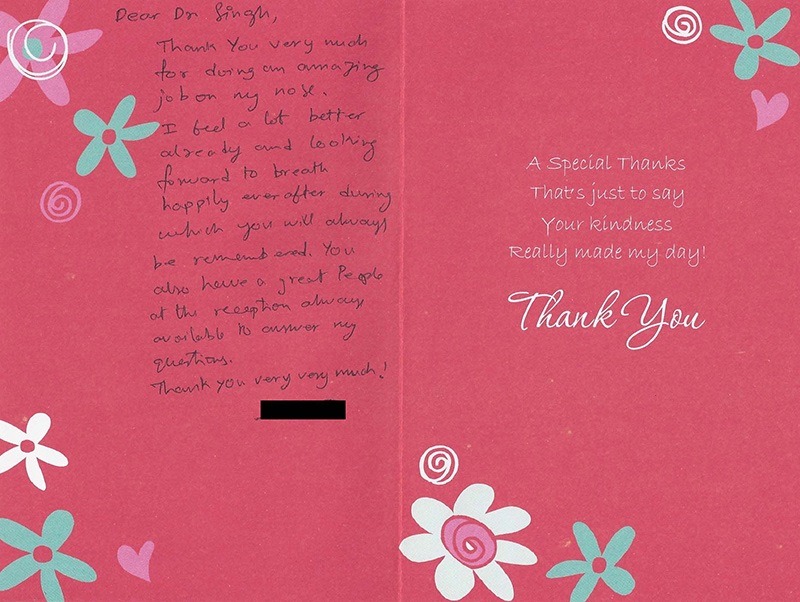 Dear Dr Singh,
Thank You very much
for doing an amazing
job on my nose.
I feel a lot better
already and looking
forward to breath
happily ever after during
which you will always
be remembered. You
also have a great People
at the reception always
available to answer my
questions.
Thank you very very much!
A Special Thanks
That's just to say
Your kindness
Really made my day!
Thank You